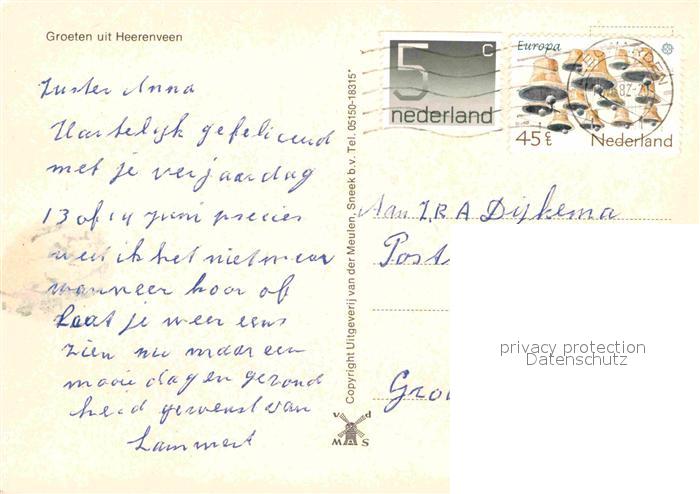 Groeten uit Heerenveen
Zuster Anna
Hartelijk gefeliceerd
met je verjaardag
13 of 14 juni precies
weet ik het niet meer
wanneer hoor of
Laat je weer eens
zien nu maar een
mooie dag en gezond
heid gewenst van
Lammert
Copyright Uitgeverij van der Meulen, Sneek b.v. Tel. 05150-18315*
v d
M A S
5 c
nederland
Europa
45 ct
Nederland
Aan Z R A Dijkema
Post
Gro
privacy protection
Datenschutz